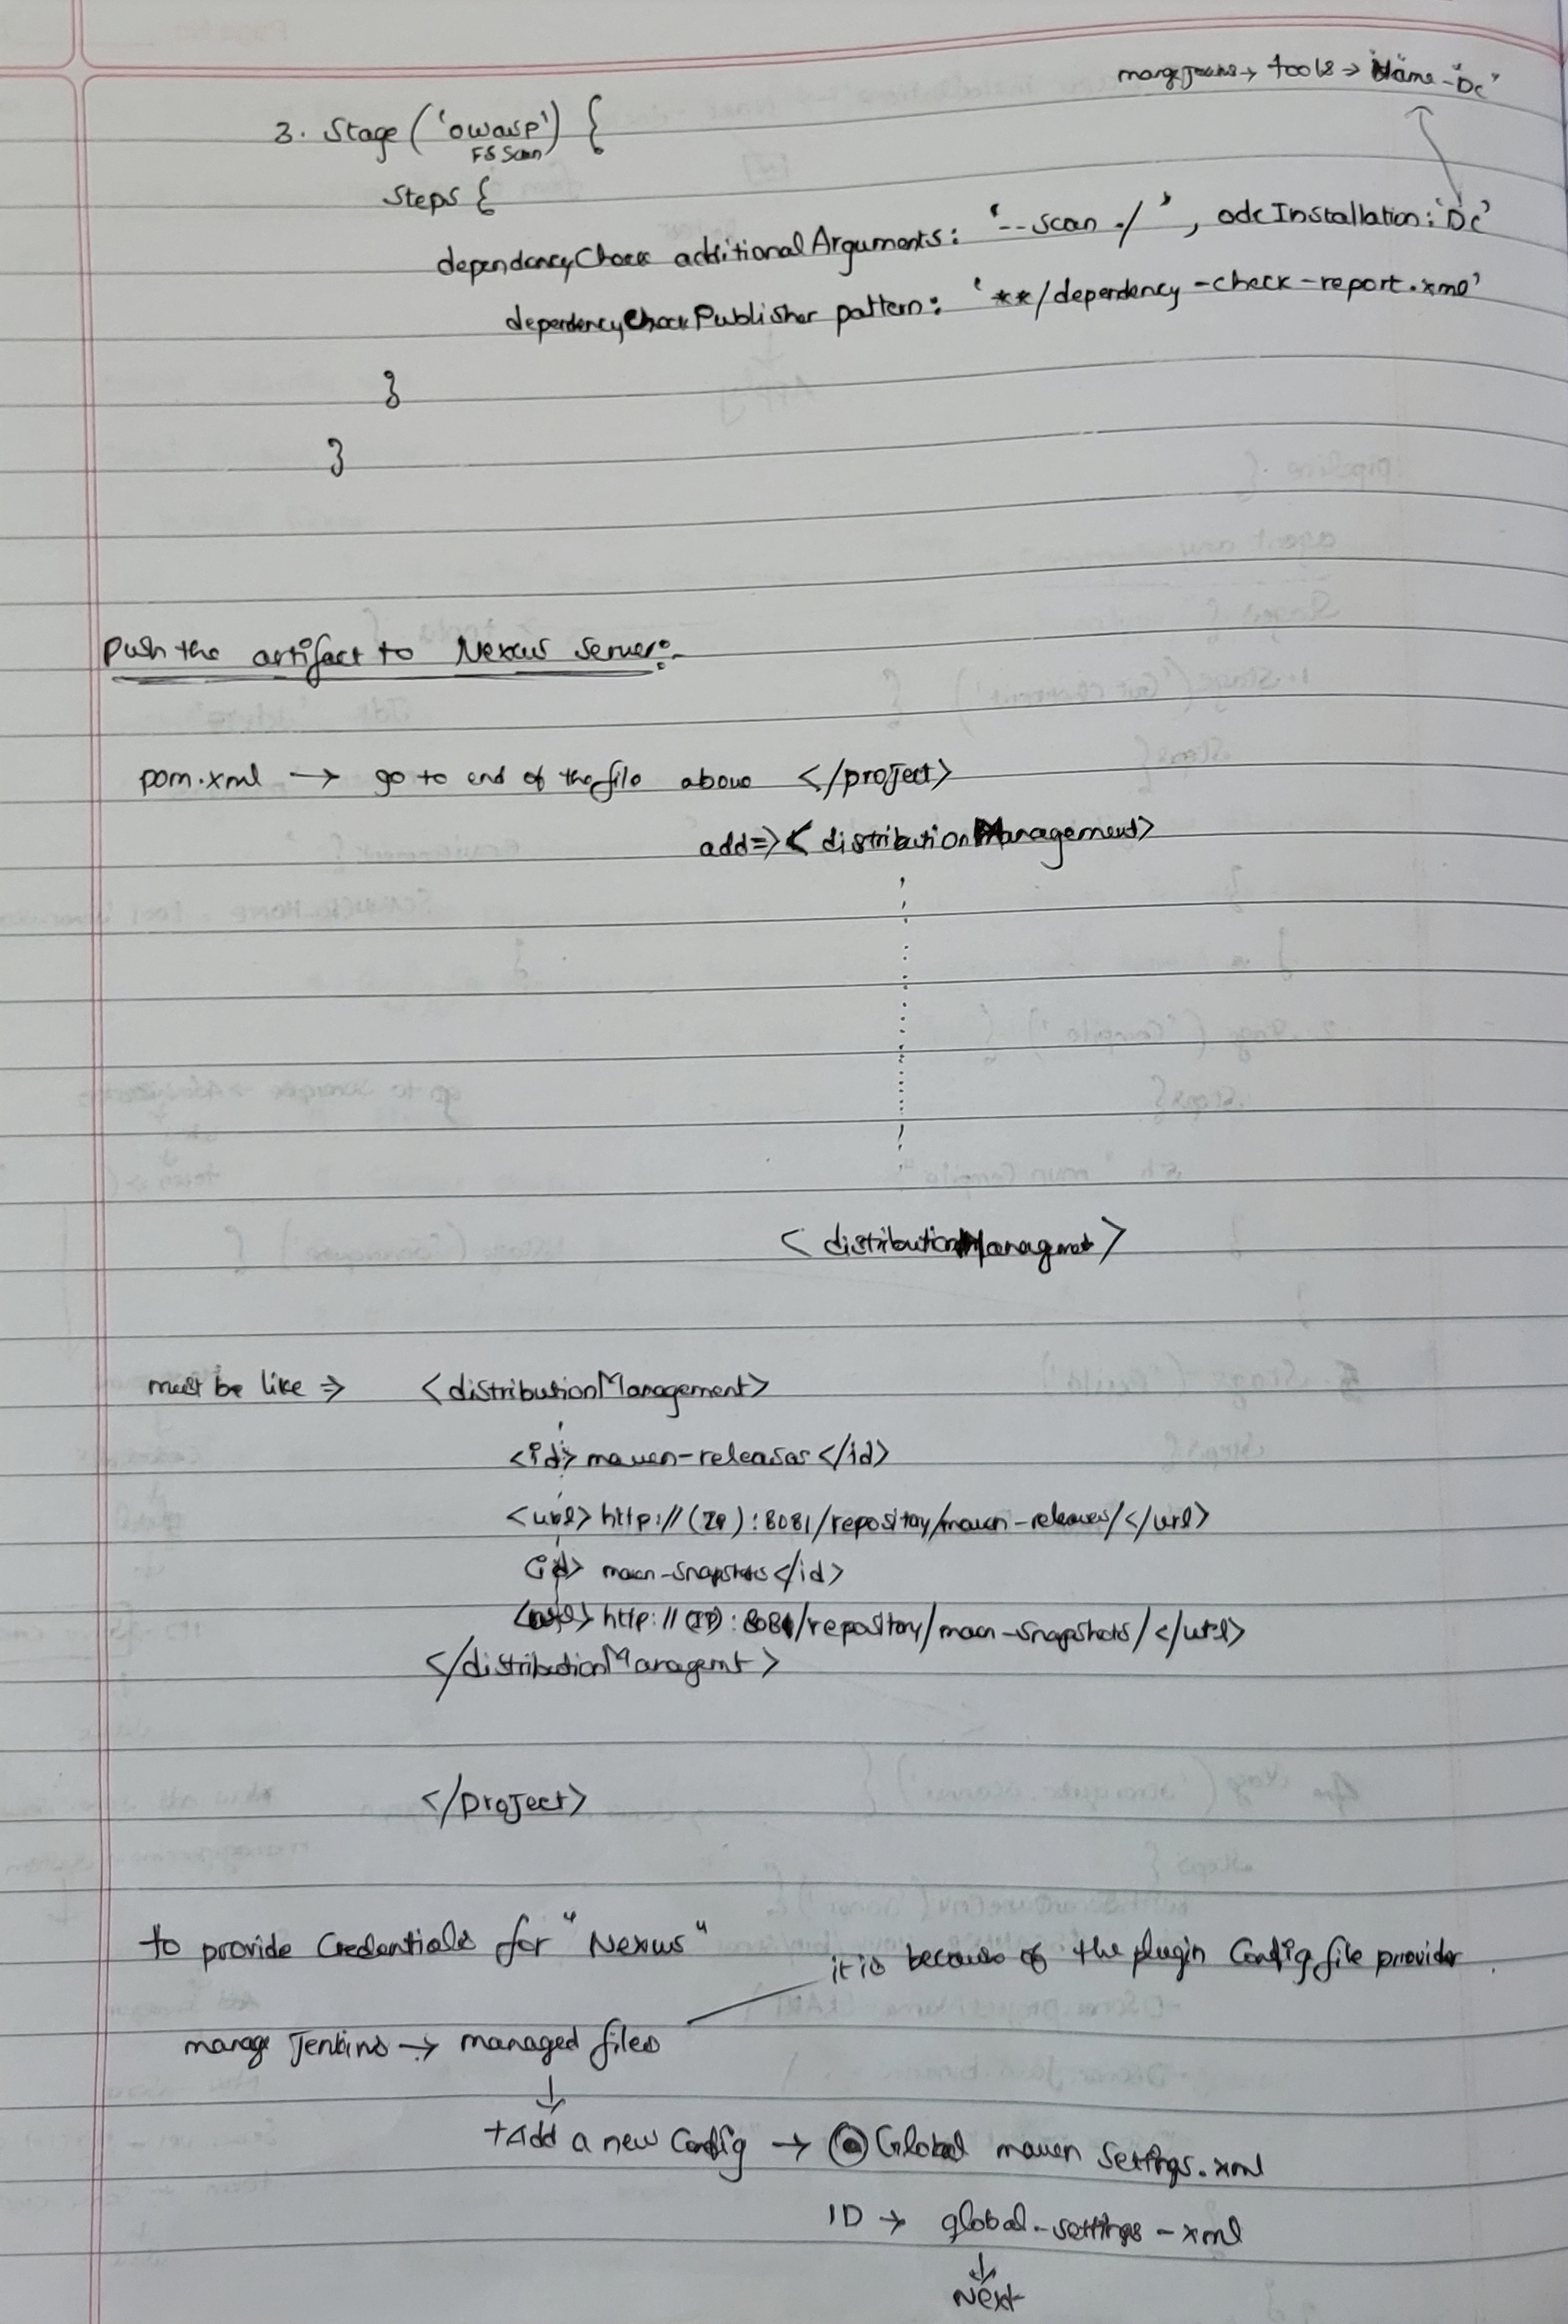 manage Jenkins → tools → Name - "DC"
3. Stage ('owasp') {
FS Scan
Steps {
dependencyCheck additionalArguments: '--scan ./ ', odcInstallation: 'DC'
dependencyCheckPublisher pattern: '**/dependency-check-report.xml'
}
}
Push the artifact to Nexus Server:-
pom.xml → go to end of the file above </project>
add => < distributionManagement>
< distributionManagmet >
must be like => <distributionManagement>
<id> maven-releases </id>
<url> http://(IP):8081/repository/maven-releases/</url>
<id> maven-snapshots </id>
<url> http://(IP):8081/repository/maven-snapshots/</url>
</distributionManagemt >
</project>
to provide Credentials for "Nexus"
it is because of the plugin Config file provider.
manage Jenkins → managed files
↓
+Add a new Config → Global maven Settings.xml
ID → global-settings-xml
↓
Next